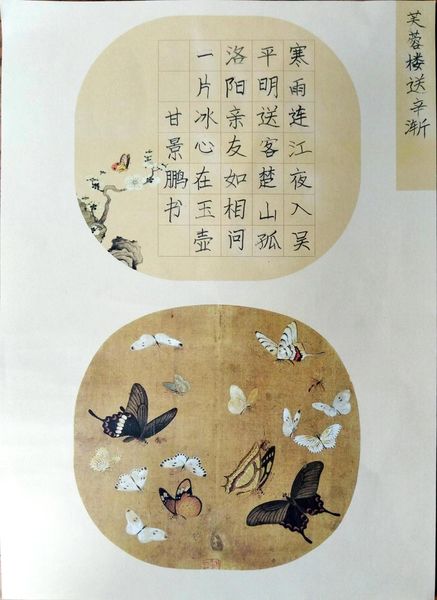 芙蓉楼送辛渐
寒雨连江夜入吴
平明送客楚山孤
洛阳亲友如相问
一片冰心在玉壶
甘景鹏书